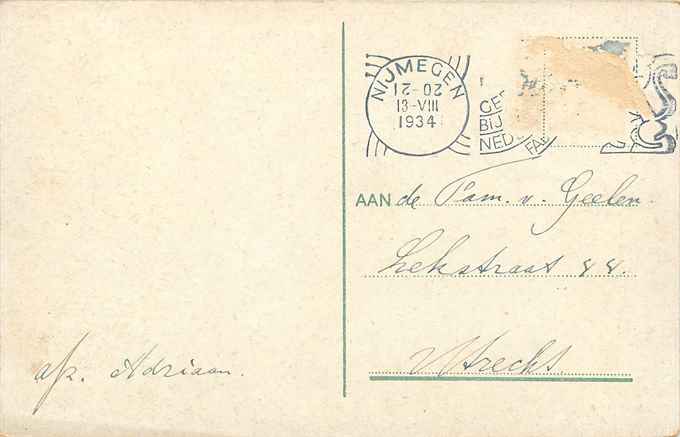 NIJMEGEN
12-02
13-VIII
1934
GE
BIJ
NED
FA
AAN de Fam. v. Geelen.
Lekstraat 44.
Utrecht.
afz. Adriaan.